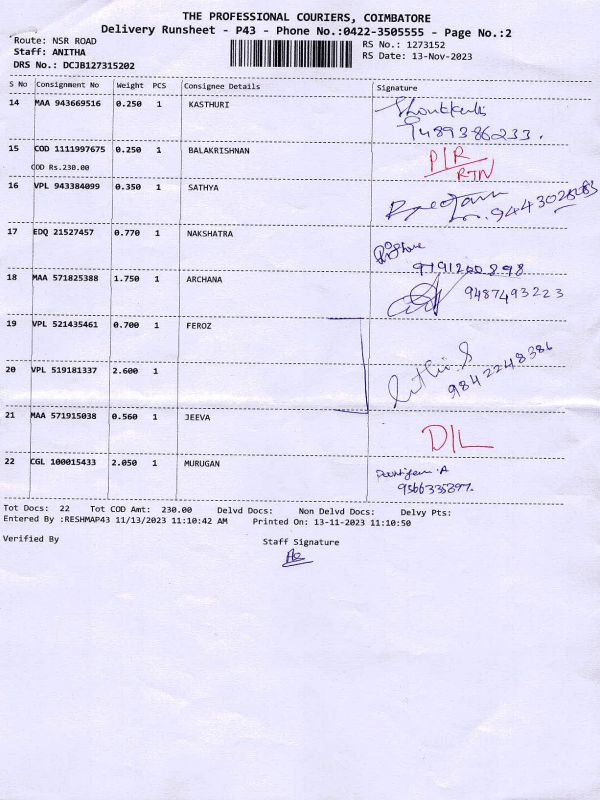 THE PROFESSIONAL COURIERS, COIMBATORE
Delivery Runsheet - P43 - Phone No.:0422-3505555 - Page No.:2
Route: NSR ROAD
Staff: ANITHA
DRS No.: DCJB127315202
RS No.: 1273152
RS Date: 13-Nov-2023
S No Consignment No Weight PCS Consignee Details Signature
14 MAA 943669516 0.250 1 KASTHURI
9489386233.
15 COD 1111997675 0.250 1 BALAKRISHNAN P/R
COD Rs.230.00 RTN
16 VPL 943384099 0.350 1 SATHYA
17 EDQ 21527457 0.770 1 NAKSHATRA
9791200898
18 MAA 571825388 1.750 1 ARCHANA 9487493223
19 VPL 521435461 0.700 1 FEROZ
20 VPL 519181337 2.600 1 9842248386
21 MAA 571915038 0.560 1 JEEVA D/L
22 CGL 100015433 2.050 1 MURUGAN
9566335897.
Tot Docs: 22 Tot COD Amt: 230.00 Delvd Docs: Non Delvd Docs: Delvy Pts:
Entered By :RESHMAP43 11/13/2023 11:10:42 AM Printed On: 13-11-2023 11:10:50
Verified By Staff Signature